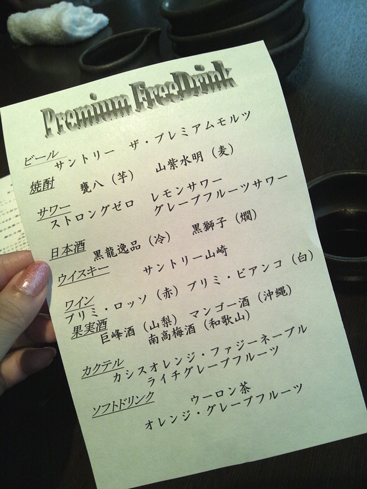 Premium FreeDrink
ビール
サントリー ザ・プレミアムモルツ
焼酎
甕八（芋） 山紫水明（麦）
サワー
ストロングゼロ レモンサワー
グレープフルーツサワー
日本酒
黒龍逸品（冷） 黒獅子（燗）
ウイスキー
サントリー山崎
ワイン
プリミ・ロッソ（赤）プリミ・ビアンコ（白）
果実酒
巨峰酒（山梨） マンゴー酒（沖縄）
南高梅酒（和歌山）
カクテル
カシスオレンジ・ファジーネーブル
ライチグレープフルーツ
ソフトドリンク
ウーロン茶
オレンジ・グレープフルーツ